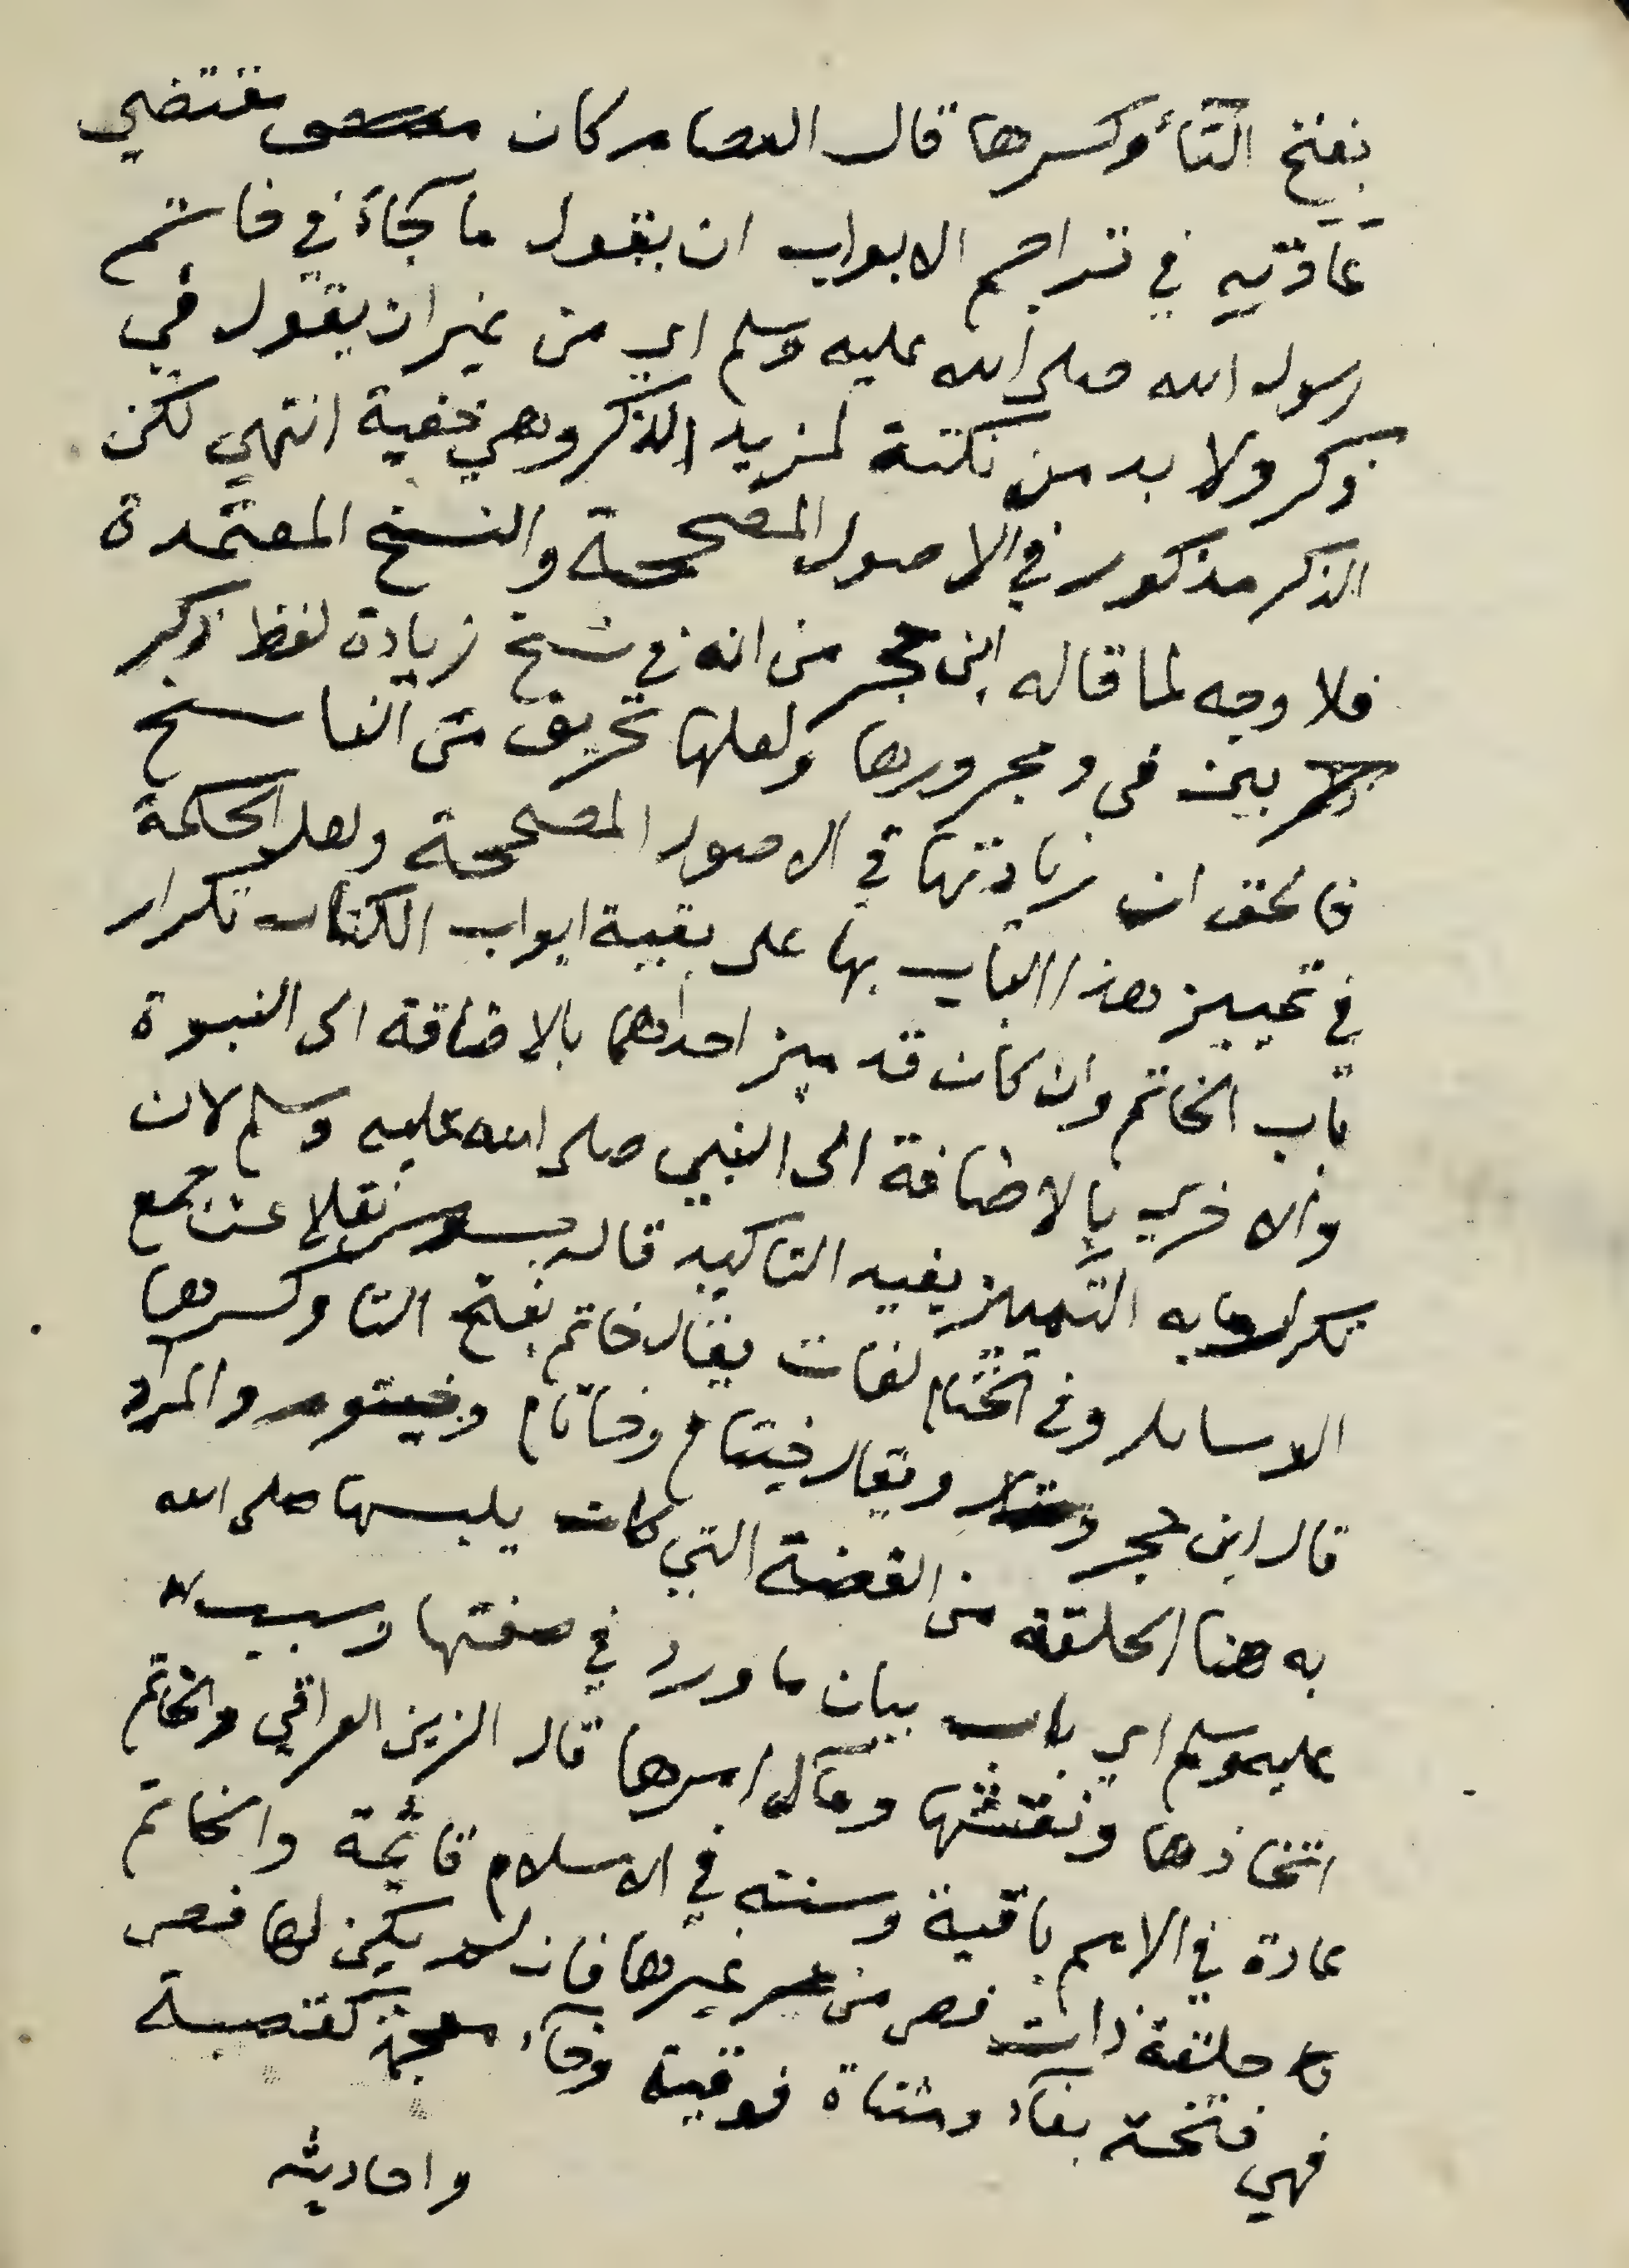 بفتح التاء وكسرها قال العصام كان مقتضي
عادته في تراجم الابواب ان يقول ما جاء في خاتم
رسول الله صلى الله عليه وسلم اي من غير ان يقول في
ذكر ولا بد من نكتة لمزيد الذكر وهي خفية انتهي لكن
الذكر مذكور في الاصول المصححة والنسخ المعتمدة
فلا وجه لما قاله ابن حجر من انه في نسخ زيادة لفظ ذكر
بين في ومجرورها ولعلها تحريف من الناسخ
فالحق ان زيادتها في الاصول المصححة ولعل الحكمة
في تمييز هذا الباب بها على بقية ابواب الكتاب تكرار
باب الخاتم وان كان قد ميز احداهما بالاضافة الى النبوة
والاخرى بالاضافة الى النبي صلى الله عليه وسلم لان
تكرار ما به التمييز يفيد التاكيد قاله نقلا عن جمع
الوسايل وفي الختم لغات يقال خاتم بفتح التا وكسرها
قال ابن حجر ويقال خيتام وخاتام وخيتوم والمراد
به هنا الحلقة من الفضة التي كان يلبسها صلى الله
عليه وسلم اي باب بيان ما ورد في صفتها وسبب
اتخاذها ونقشها ومآل امرها قال الزين العراقي والخاتم
عادة في الامم باقية وسنته في الاسلام قائمة والخاتم
حلقة ذات فص من غيرها فان لم يكن لها فص
فهي فتخة بفاء ومثناة فوقية وخاء معجمة كقصبة
واحاديثه